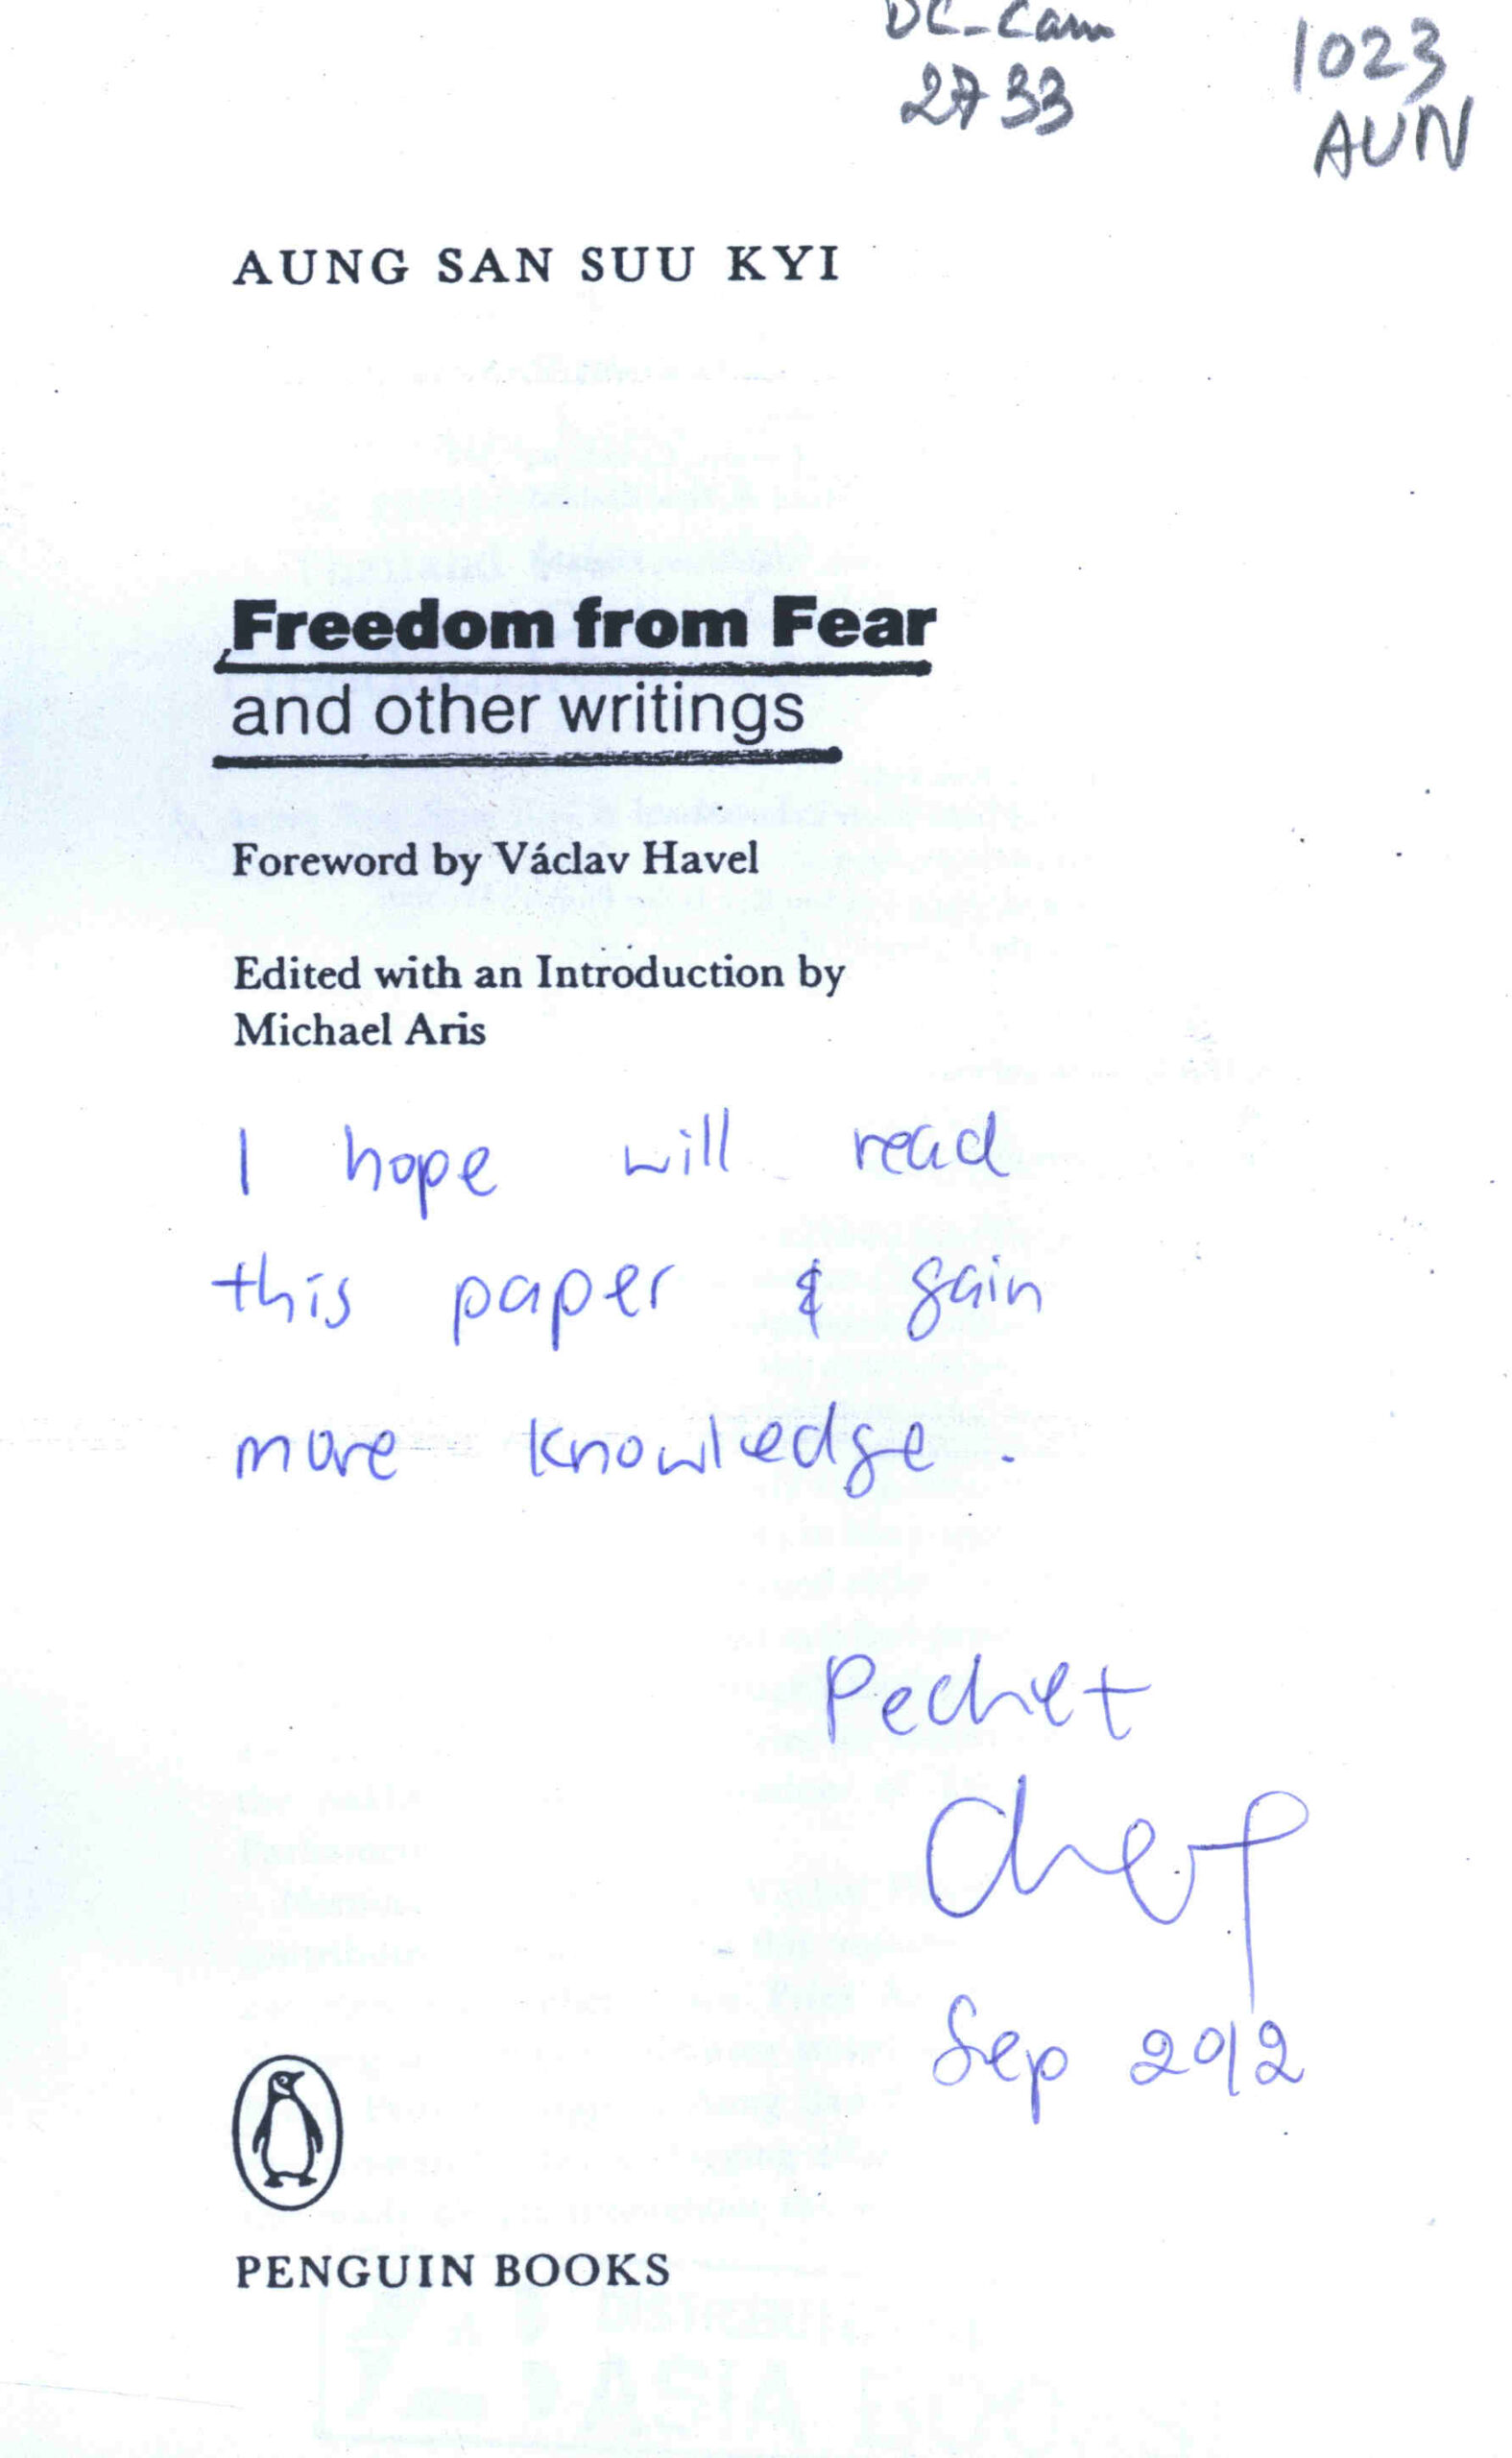 DC-Cam
2733
1023
AUN
AUNG SAN SUU KYI
Freedom from Fear
and other writings
Foreword by Václav Havel
Edited with an Introduction by
Michael Aris
I hope will read
this paper & gain
more knowledge.
Pechet
Sep 2012
PENGUIN BOOKS